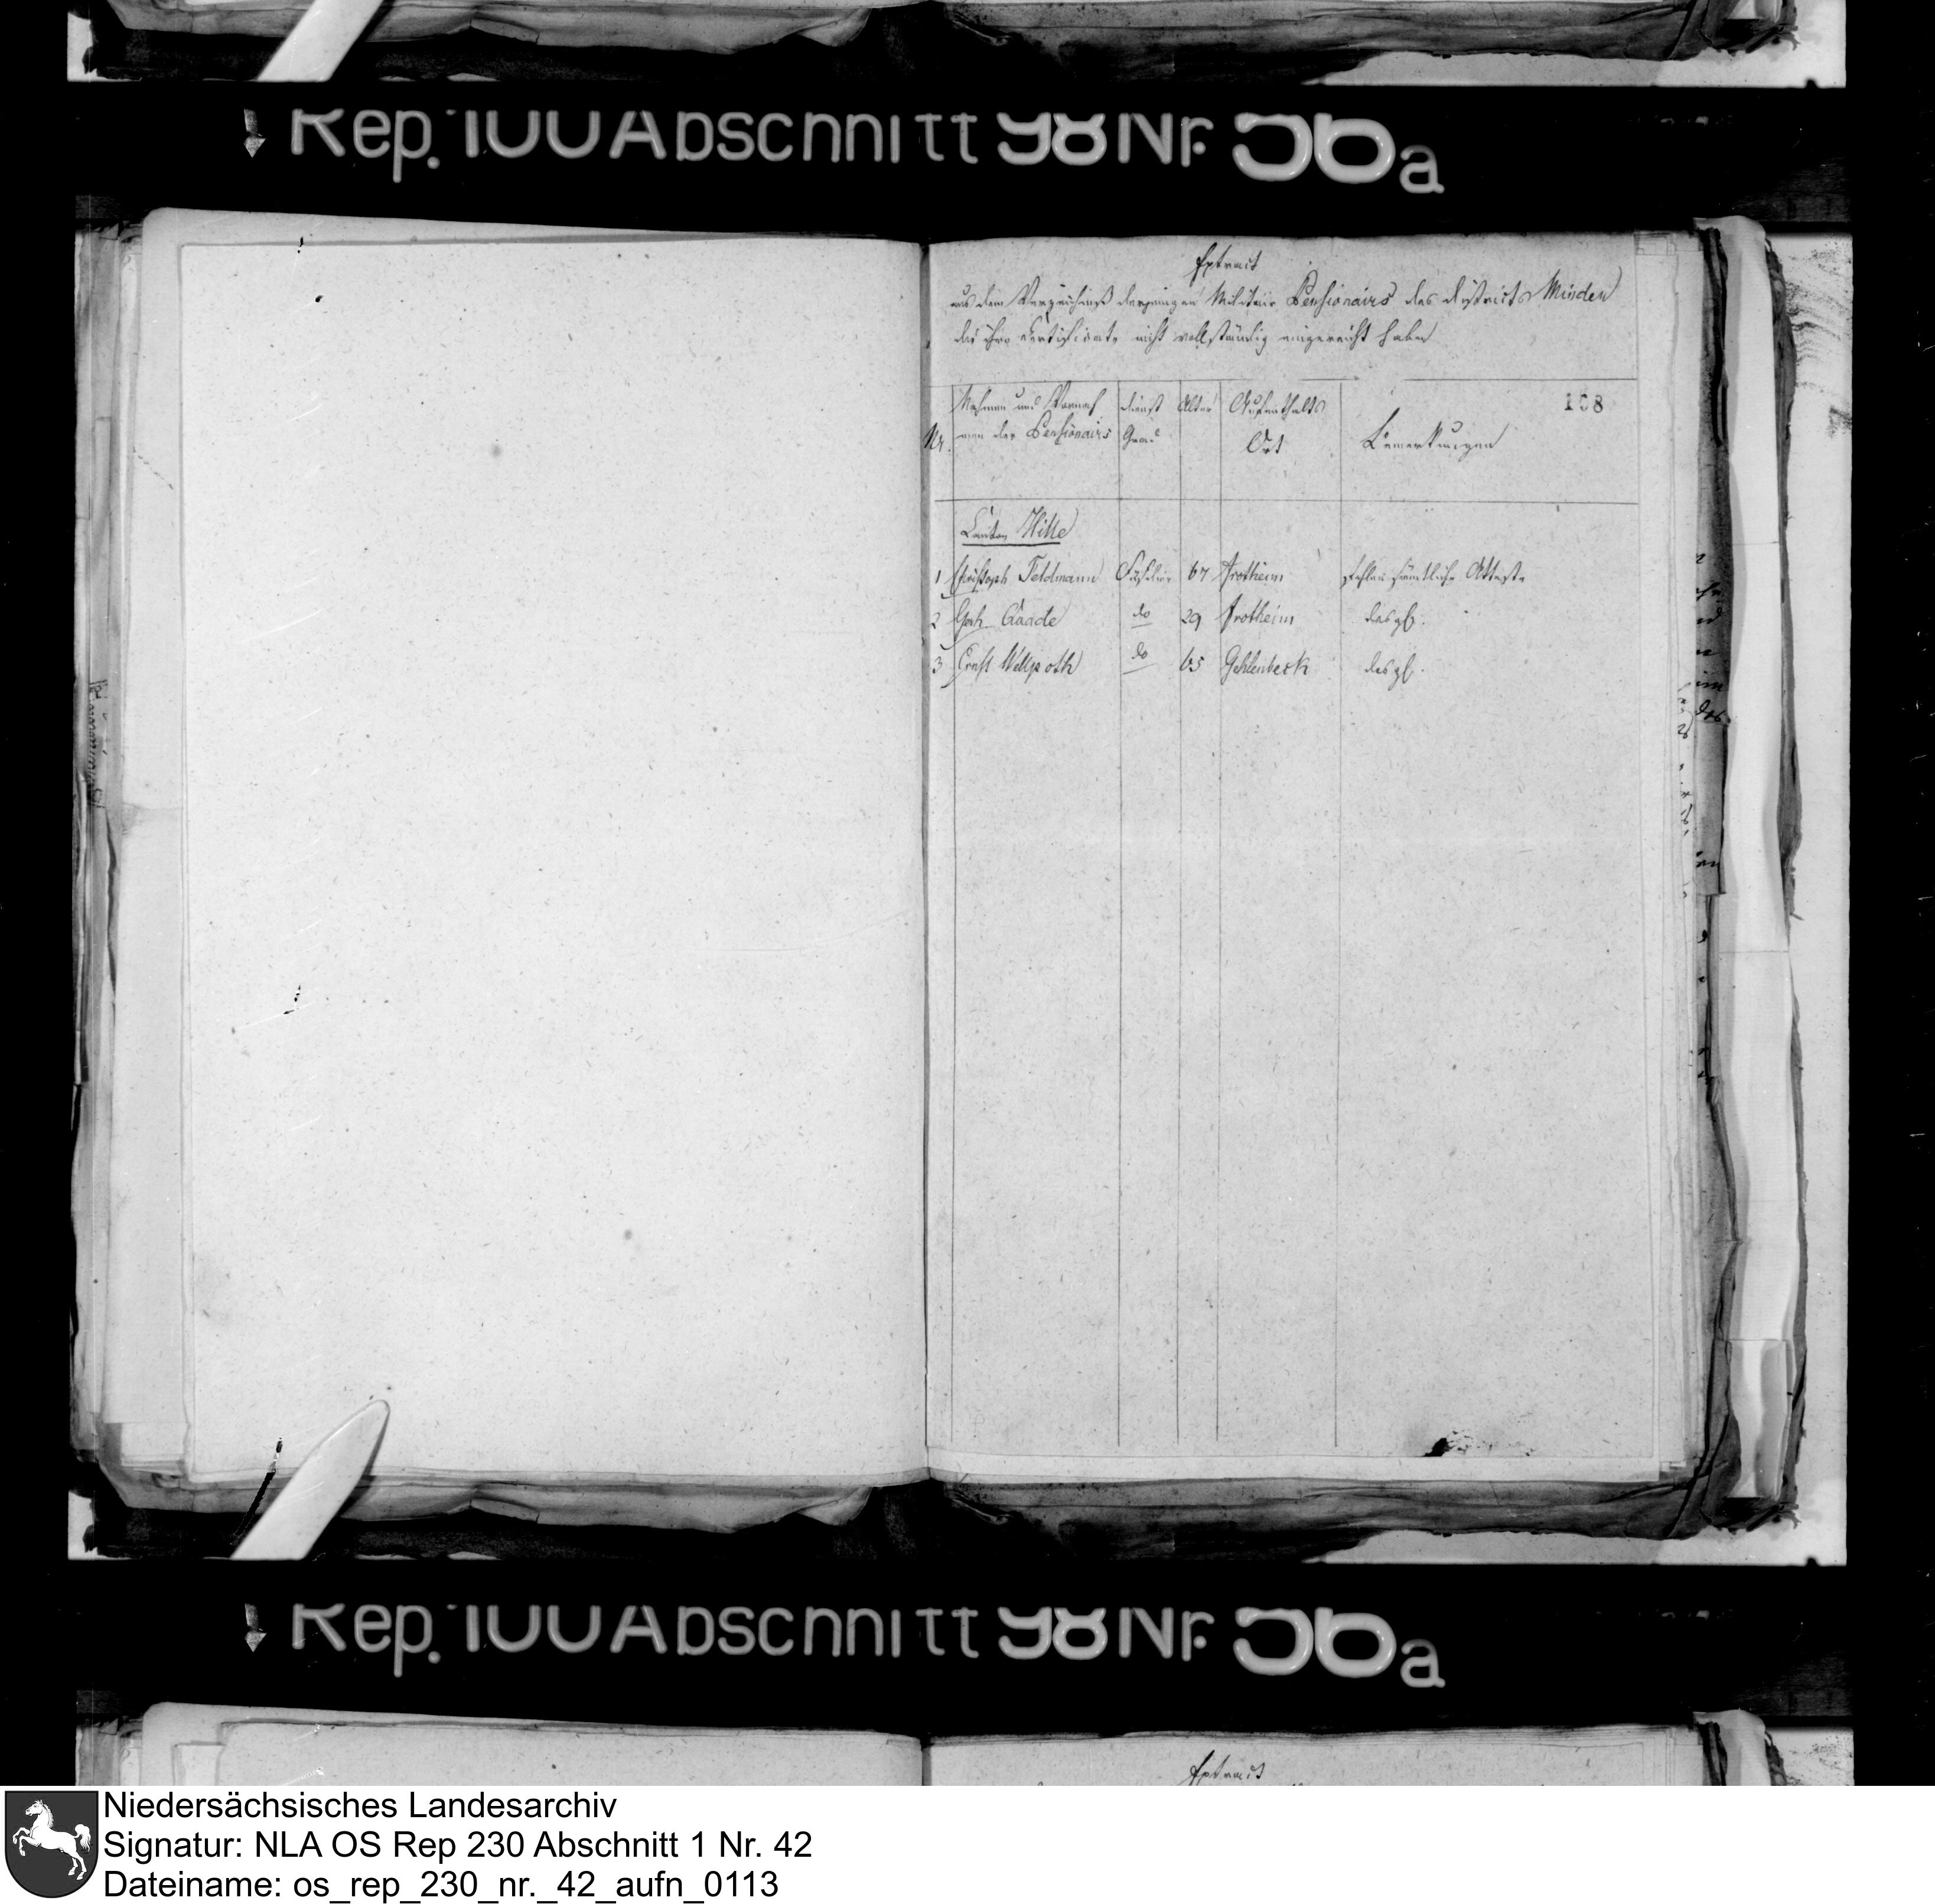 Rep. 100 Abschnitt 98 Nr. 56a
Extract
aus dem Verzeichniß derjenigen Militair Pensionairs des Districts Minden
die ihre Certificate nicht vollständig eingereicht haben
108
Nr.
Nahmen und Vornah
men der Pensionairs
Dienst
Grad
Alter
Aufenthalts
Ort
Bemerkungen
Canton Hille
1 Christoph Feldmann Füselier 67 Frotheim fehlen sämtliche Atteste
2 Gaade do 29 Frotheim desgl.
3 Ernst do 65 Gehlenbeck desgl.
Rep. 100 Abschnitt 98 Nr. 56a
Extract
Niedersächsisches Landesarchiv
Signatur: NLA OS Rep 230 Abschnitt 1 Nr. 42
Dateiname: os_rep_230_nr._42_aufn_0113